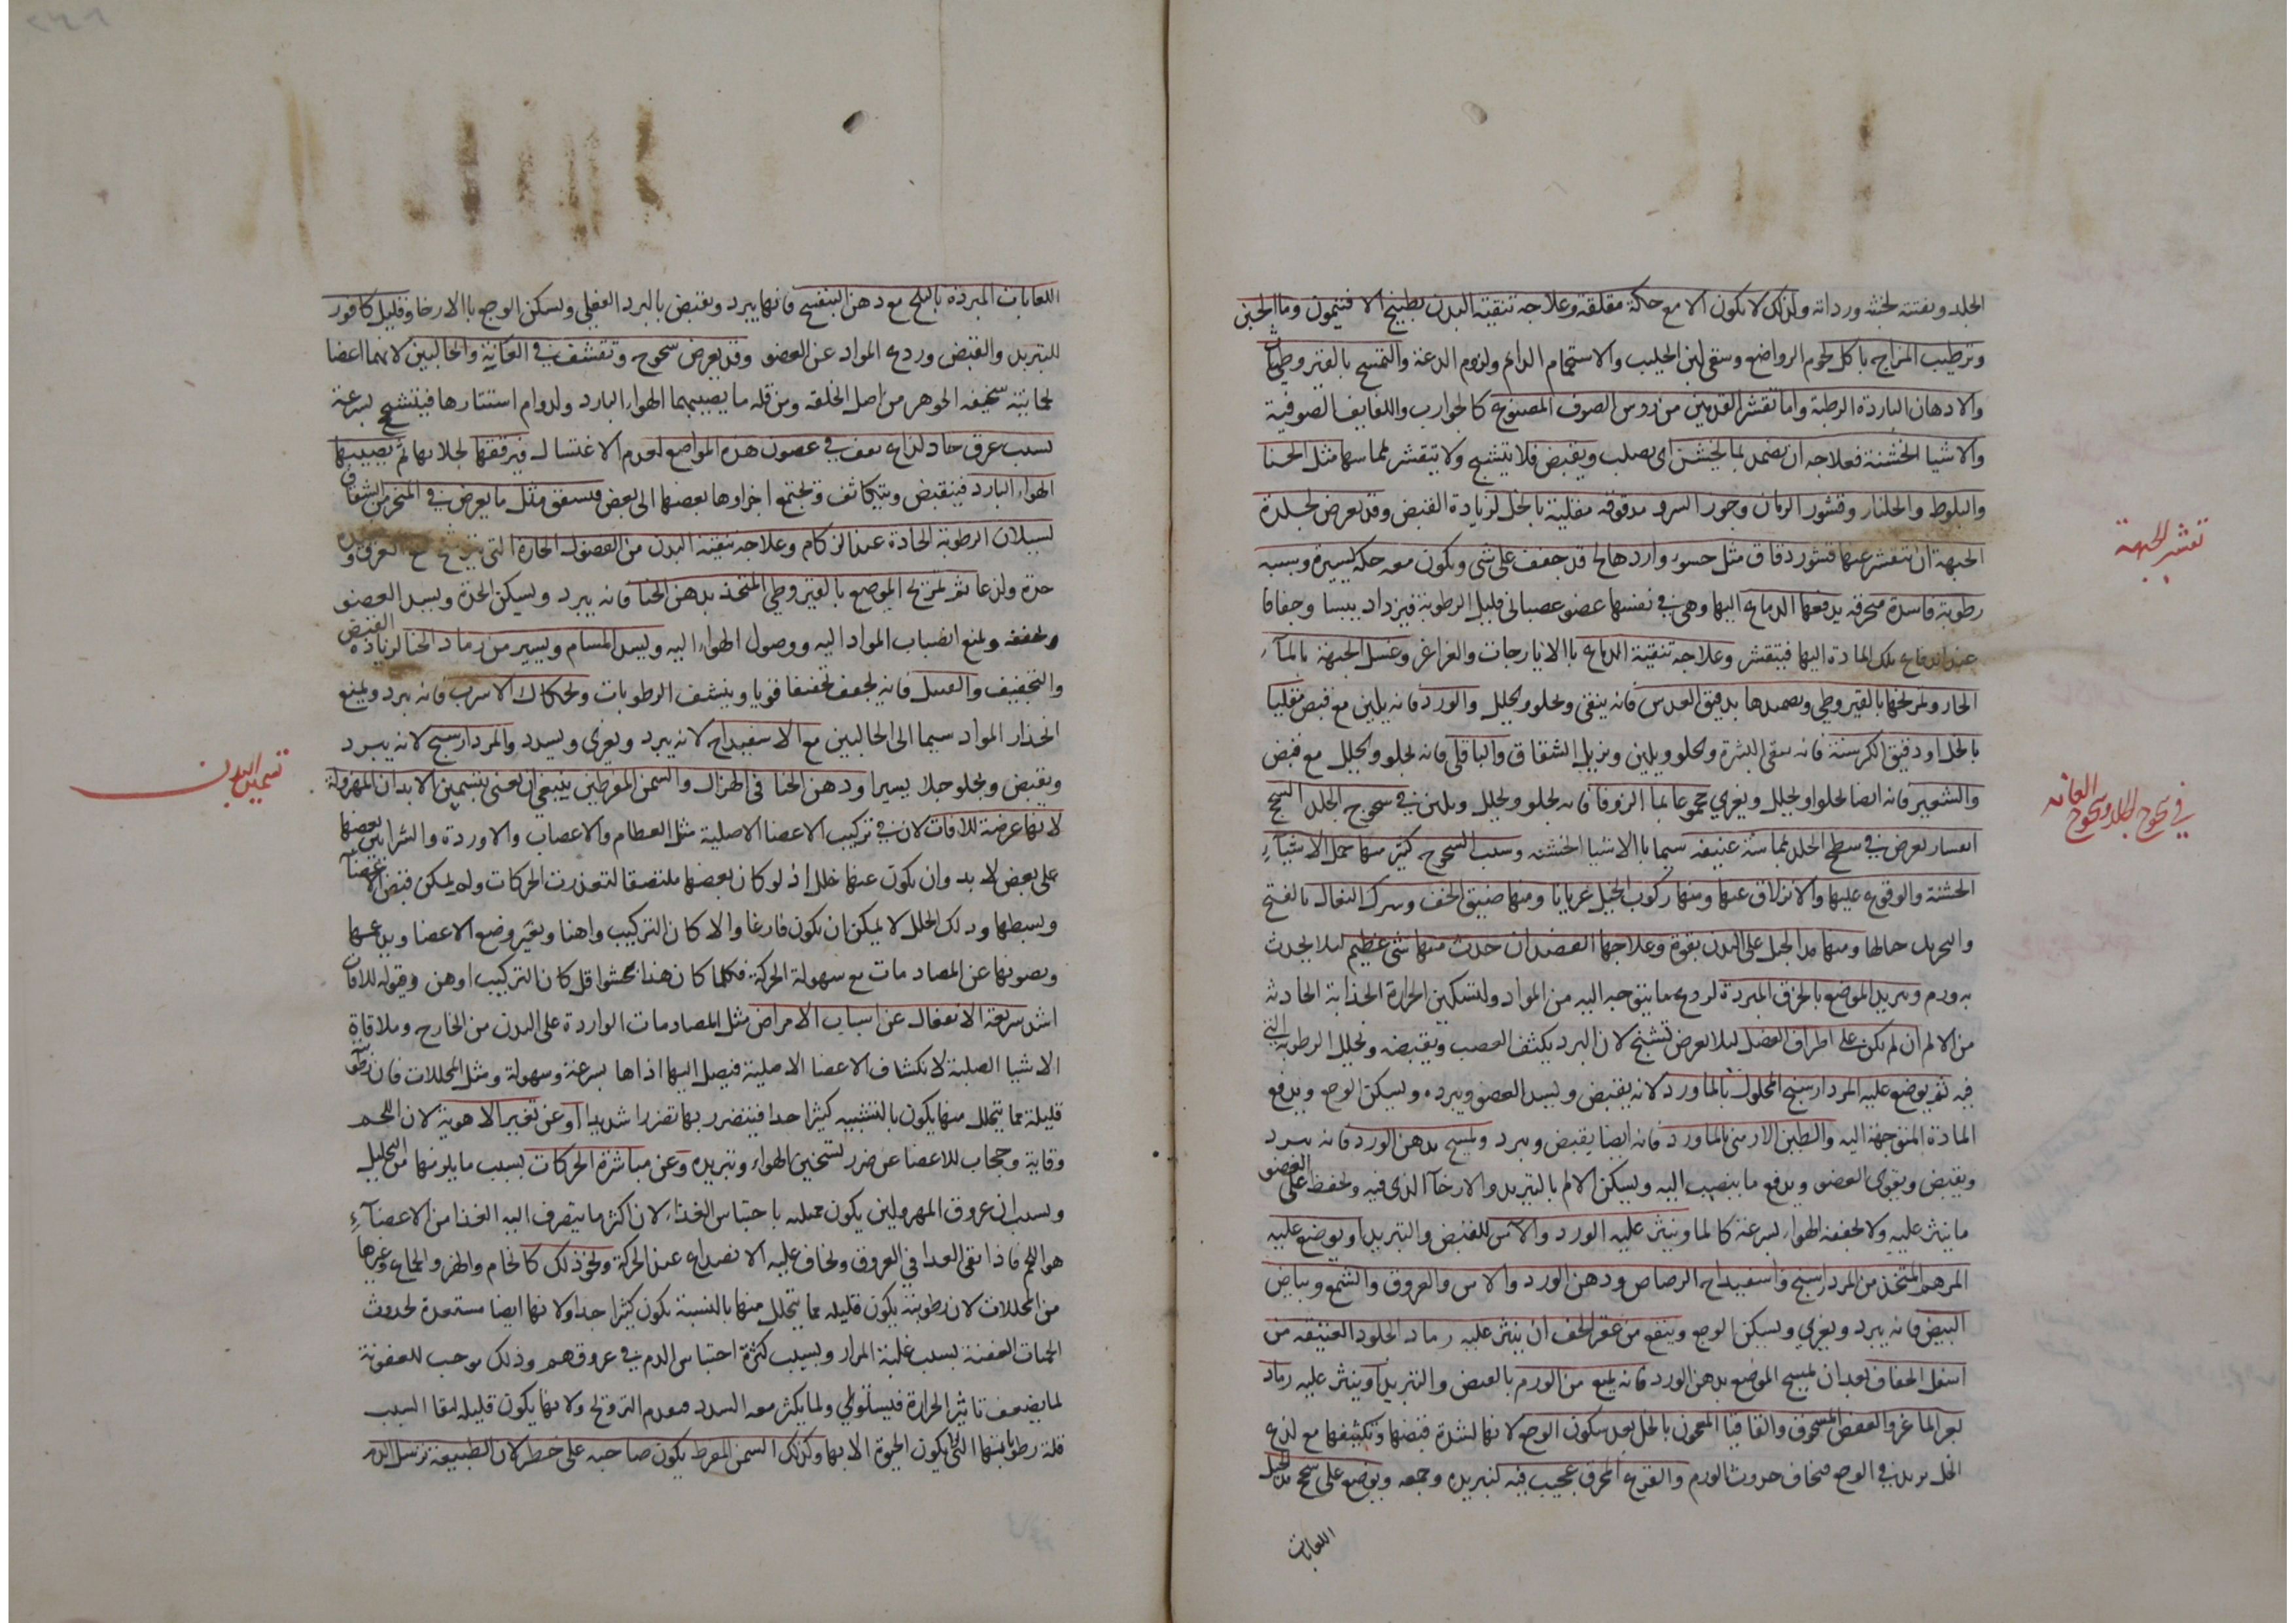 الجلد ويفتته لخبثه ورداته ولذلك لا يكون الا مع حكة مقلقة وعلاجه تنقية البدن بطبيخ الافتيمون وماء الجبن
وترطيب المزاج باكل لحوم الرواضع وسقى لبن الحليب والاستحمام الدائم ولزوم الدعة والتمسح بالقيروطيات
والادهان الباردة الرطبة واما تقشر القدمين من دوس الصوف المصنوع كالجوارب واللفايف الصوفية
والاشيا الخشنة فعلاجه ان يضمد بما يخشن اى يصلب ويقبض فلا يتشنج ولا يتقشر مما سها مثل الحنا
والبلوط والجلنار وقشور الرمان وجوز السرو مدقوقه مقلية بالخل لزيادة القبض وقد يعرض لجلدة
الجبهة ان يتقشر عنها قشور دقاق مثل حسو واردهالج قد جفف على شى ويكون معه حكة يسيرة وسببه
رطوبة فاسدة محرقه يدفعها الدماغ اليها وهى فى نفسها عضو عصبانى قليل الرطوبة فيزداد يبسا وجفافا
عند اندفاع تلك المادة اليها فيتقشر وعلاجه تنقية الدماغ بالايارجات والغراغر وغسل الجبهة بالمآء
الحار وتمريخها بالقيروطى وتضميدها بدقيق العدس فانه ينقى ويجلو ويحلل والورد فانه يلين مع قبض مقليا
بالخل او دقيق الكرسنة فانه ينقى البشرة ويجلو ويلين ويزيل الشقاق والباقلى فانه يجلو ويحلل مع قبض
والشعير فانه ايضا يجلو او يحلل ويغرى مجموعا بما الزوفا فانه يجلو ويحلل ويلين فى سحوج الجلد السحج
انقشار يعرض فى سطح الجلد بمماسة عنيفة سيما بالاشيا الخشنه وسبب السحوج كثير منها حمل الاشيآء
الخشنة والوقوع عليها والانزلاق عنها ومنها ركوب الخيل عريانا ومنها ضيق الخف وشرك النعال بالفتح
والتحريك حالها ومنها مد الحبل على البدن بقوة وعلاجها الفصد ان حدث منها شى عظيم ليلا يحدث
به ورم وتبريد الموضع بالخرق المبردة لردع ما يتوجه اليه من المواد ولتسكين الحرارة الجذابة الحادثه
من الالم ان لم يكن على اطراف العضل ليلا يعرض تشنج لان البرد يكثف العصب ويقبضه ويحلل الرطوبة التى
فيه ثم يوضع عليه المردارسنج المحلول بالماورد لانه يقبض ويسد العضو ويبرده ويسكن الوجع ويدفع
المادة المتوجهة اليه والطين الارمنى بالماورد فانه ايضا يقبض ويبرد ويمسح بدهن الورد فانه يبرد
ويقبض ويقوى العضو ويدفع ما ينصب اليه ويسكن الالم بالتبريد والارخآ الذى فيه ويحفظ على العضو
ما ينثر عليه ولا يجففه الهواء بسرعة كالما وينثر عليه الورد والآس للقبض والتبريد او يوضع عليه
المرهم المتخذ من المردارسنج واسفيداج الرصاص ودهن الورد والاس والعروق والشمع وبياض
البيض فانه يبرد ويغرى ويسكن الوجع وينفع من عقر الخف ان ينثر عليه رماد الجلود العتيقة من
اسفل الخفاف بعد ان يمسح الموضع بدهن الورد فانه يمنع من الورم بالقبض والتبريد او ينثر عليه رماد
بعر الماعز والعفص المسحوق والقاقيا المعجون بالخل بعد سكون الوجع لانها لشدة قبضها وتكثيفها مع لذع
الخل يزيد فى الوجع فيخاف حدوث الورم والقرع المحرق عجيب فيه لتبريده وجمعه ويوضع على سحج الحبل
اللعابات
تقشير الجبهة
فى سحوج الجلد وسحوج العانه
اللعابات المبردة بالثلج مع دهن البنفسج فانها يبرد ويقبض بالبرد الفعلى ويسكن الوجع بالارخا وقليل كافور
للتبريد والقبض وردع المواد عن العضو وقد يعرض سحوج وتقشف فى العانة والحالبين لانهما اعضا
لحمانية سخيفه الجوهر من اصل الخلقه ومن قلة ما يصيبهما الهواء البارد ولدوام استتارها فيتشنج بسرعة
بسبب عرق حاد لذاع يعفن فى غضون هذه المواضع لعدم الاغتسال فيرققها بجلائها ثم يصيبها
الهواء البارد فينقبض ويتكاثف وتجتمع اجزاوها بعضها الى بعض فيتشقق مثل ما يعرض فى المنخر من الشقاق
لسيلان الرطوبة الحادة عند الزكام وعلاجه تنقية البدن من الفضول الحارة التى يترشح مع العرق
حدة ولذعا ثم تمريخ الموضع بالقيروطى المتخذ بدهن الحنا فانه يبرد ويسكن الحدة ويسد العضو
ويجففه ويمنع انصباب المواد اليه ووصول الهواء اليه ويسد المسام ويسير من رماد الحنا لزيادة القبض
والتجفيف والعسل فانه يجفف تجفيفا قويا وينشف الرطوبات وبحكاك الاسرب فانه يبرد ويمنع
انحدار المواد سيما الى الحالبين مع الاسفيداج لانه يبرد ويغرى ويسدد والمردارسنج لانه يبرد
ويقبض ويجلو جلا يسيرا ودهن الحنا فى الهزال والسمن المفرطين ينبغى ان يعنى بتسمين الابدان المهزولة
لانها عرضة للافات لان فى تركيب الاعضا الاصلية مثل العظام والاعصاب والاوردة والشرايين بعضها
على بعض لا بد وان يكون عنها خلل اذ لو كان بعضها ملتصقا لتعذرت الحركات ولم يمكن قبض الاعضآء
وبسطها وذلك الخلل لا يمكن ان يكون فارغا والا كان التركيب واهنا وتغير وضع الاعضا ويدعمها
ويصونها عن المصادمات مع سهولة الحركة فكلما كان هذا محشوا اقل كان التركيب اوهن وقبوله للافات
اشد سريعة الانفعال عن اسباب الامراض مثل المصادمات الواردة على البدن من الخارج وملاقاة
الاشيا الصلبة لانكشاف الاعضا الاصلية فيصل اليها اذاها بسرعة وسهولة ومثل المحللات فان رطوبته
قليلة مما يتحلل منها يكون بالنسبة كثيرا جدا فيتضرر بها تضررا شديدا او عن تغير الاهوية لان اللحم
وقاية وحجاب للاعضا عن ضرر تسخين الهواء وتبريده وعن مباشرة الحركات بسبب ما يلزمها من التحليل
وبسبب ان عروق المهزولين يكون ممتليه باحتباس الغذاء لان اكثر ما يتصرف اليه الغذا من الاعضآء
هو اللحم فاذا بقى الغدا فى العروق ويخاف عليه الانصداع عند الحركة ونحو ذلك كالحمام والهز والجماع وغيرها
من المحللات لان رطوبته يكون قليله مما يتحلل منها بالنسبة يكون كثيرا جدا ولانها ايضا مستعدة لحدوث
الحميات العفنة بسبب غلبة المرار وبسبب كثرة احتباس الدم فى عروقهم وذلك موجب للعفونة
لما يضعف تاثير الحرارة فيستولى ولما يكثر معه السدد فيعدم التروح ولانها يكون قليله البقا بسبب
قلة رطوباتها التى لا يكون الحيوة الا بها وكذلك السمن المفرط يكون صاحبه على خطر لان الطبيعة ترسل الدم
تسمين البدن